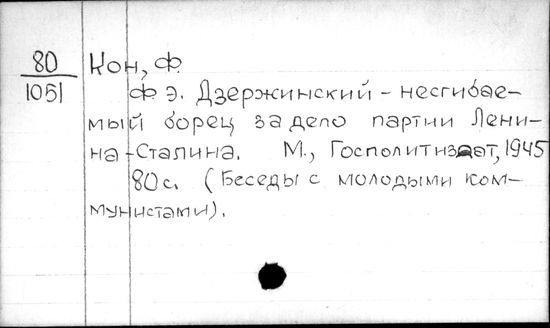 80
1051
Кон, Ф.
Ф.Э. Дзержинский - несгибае-
мый борец за дело партии Лени-
на-Сталина. М., Госполитиздат, 1945
80с. (Беседы с молодыми ком-
мунистами).